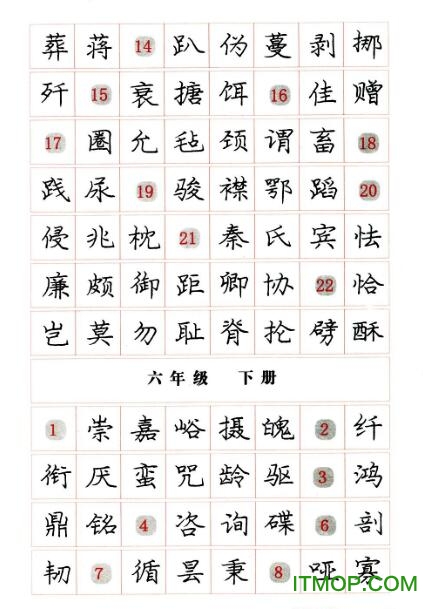 葬蒋14趴伪蔓剥挪
歼15衰搪饵16佳赠
17圈允毡颈谓畜18
践尿19骏襟鄂蹈20
侵兆枕21秦氏宾怯
廉颇御距卿协22恰
岂莫勿耻脊抡劈酥
六年级 下册
1崇嘉峪摄魄2纤
衔厌蛮咒龄驱3鸿
鼎铭4咨询碟6剖
韧7循昙秉8哑寡
ITMOP.COM